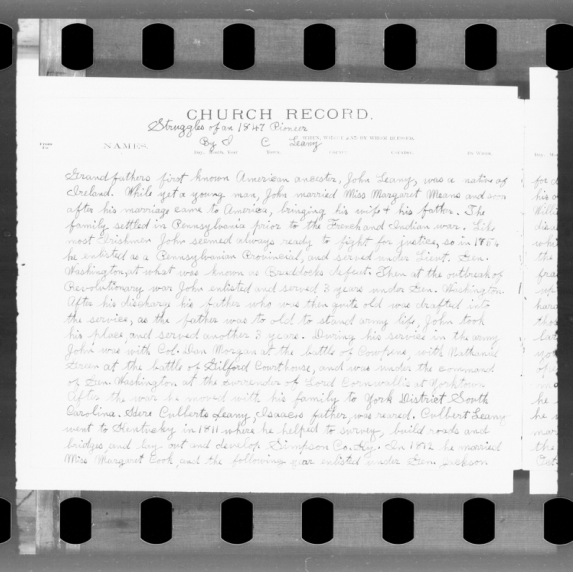 CHURCH RECORD.
Struggles of an 1847 Pioneer
NAMES.
By I C Leany
Grandfathers first known American ancestor, John Leany, was a native of
Ireland. While yet a young man, John married Miss Margaret Means and soon
after his marriage came to America, bringing his wife & his father. The
family settled in Pennsylvania prior to the French and Indian war. Like
most Irishmen John seemed always ready to fight for justice, so in
he enlisted as a Pennsylvanian Provincial, and served under Lieut. Gen.
Washington, at what was known as Braddocks defeat. Then at the outbreak of
Revolutionary war John enlisted and served 3 years under Gen. Washington.
After his discharg his father who was then quite old was drafted into
the service, as the father was to old to stand army life, John took
his place, and served another 3 years. During his services in the army
John was with Col. Dan Morgan at the battle of Cowpens, with Nathaniel
Green at the battle of Gilford Courthouse, and was under the command
of Gen. Washington at the surrender of Lord Cornwallis at Yorktown.
After the war he moved with his family to York District South
Carolina. Here Culberts Leany, Isaacs father, was reared. Colbert Leany
went to Kentucky in 1811 where he helped to survey, build roads and
bridges and lay out and develop Simpson Co. Ky. In 1812 he married
Miss Margaret Cook, and the following year enlisted under Gen. Jackson